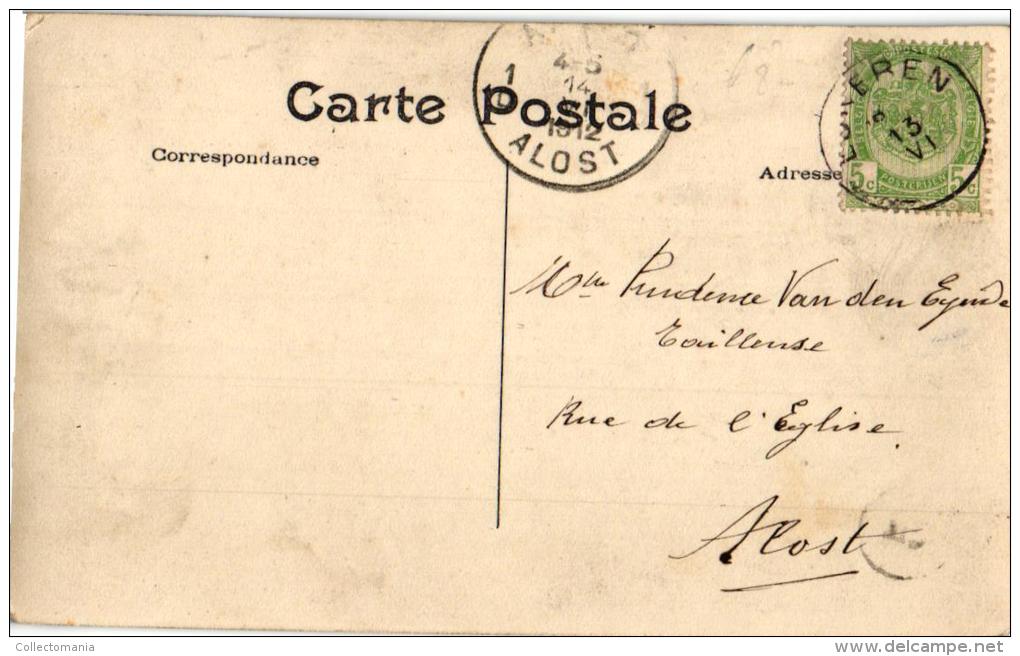 Carte Postale
Correspondance
Adresse
1
4-5
14
1912
ALOST
13
VI
5c POSTERIJEN 5c
Mlle Prudence Van den Eynde
Tailleuse
Rue de l'Eglise
Alost
Collectomania
delcampe.net